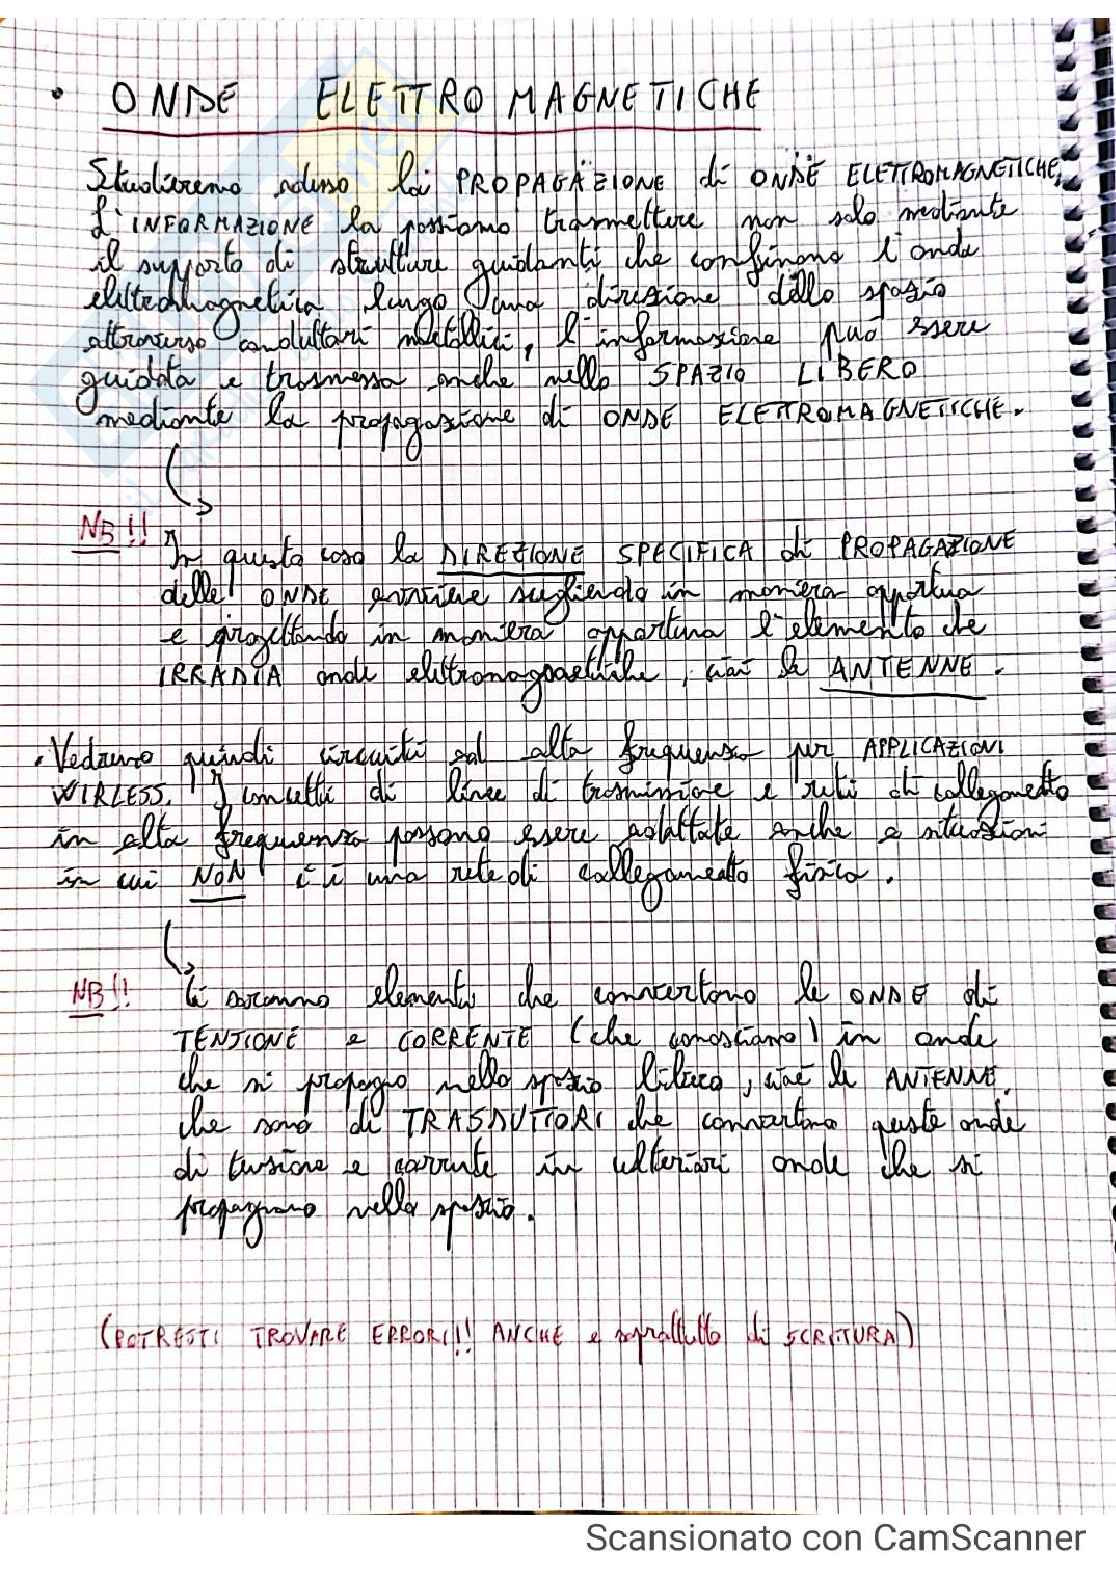 • ONDE ELETTROMAGNETICHE
Studieremo adesso la PROPAGAZIONE di ONDE ELETTROMAGNETICHE,
L'INFORMAZIONE la possiamo trasmettere non solo mediante
il supporto di strutture guidanti che confinano l'onda
elettromagnetica lungo una direzione dello spazio
attraverso conduttori metallici, l'informazione può essere
guidata e trasmessa anche nello SPAZIO LIBERO
mediante la propagazione di ONDE ELETTROMAGNETICHE.
NB!! In questo caso la DIREZIONE SPECIFICA di PROPAGAZIONE
delle ONDE avviene scegliendo in maniera opportuna
e progettando in maniera opportuna l'elemento che
IRRADIA onde elettromagnetiche, cioè le ANTENNE.
• Vedremo quindi circuiti ad alta frequenza per APPLICAZIONI
WIRLESS. I concetti di linee di trasmissione e reti di collegamento
in alta frequenza possono essere adattate anche a situazioni
in cui NON c'è una rete di collegamento fisico.
NB!! Ci saranno elementi che convertono le ONDE di
TENSIONE e CORRENTE (che conosciamo) in onde
che si propagno nello spazio libero, cioè le ANTENNE,
che sono di TRASDUTTORI che convertono queste onde
di tensione e corrente in ulteriori onde che si
propagano nello spazio.
(POTRESTI TROVARE ERRORI!! ANCHE e soprattutto di SCRITTURA)
Scansionato con CamScanner